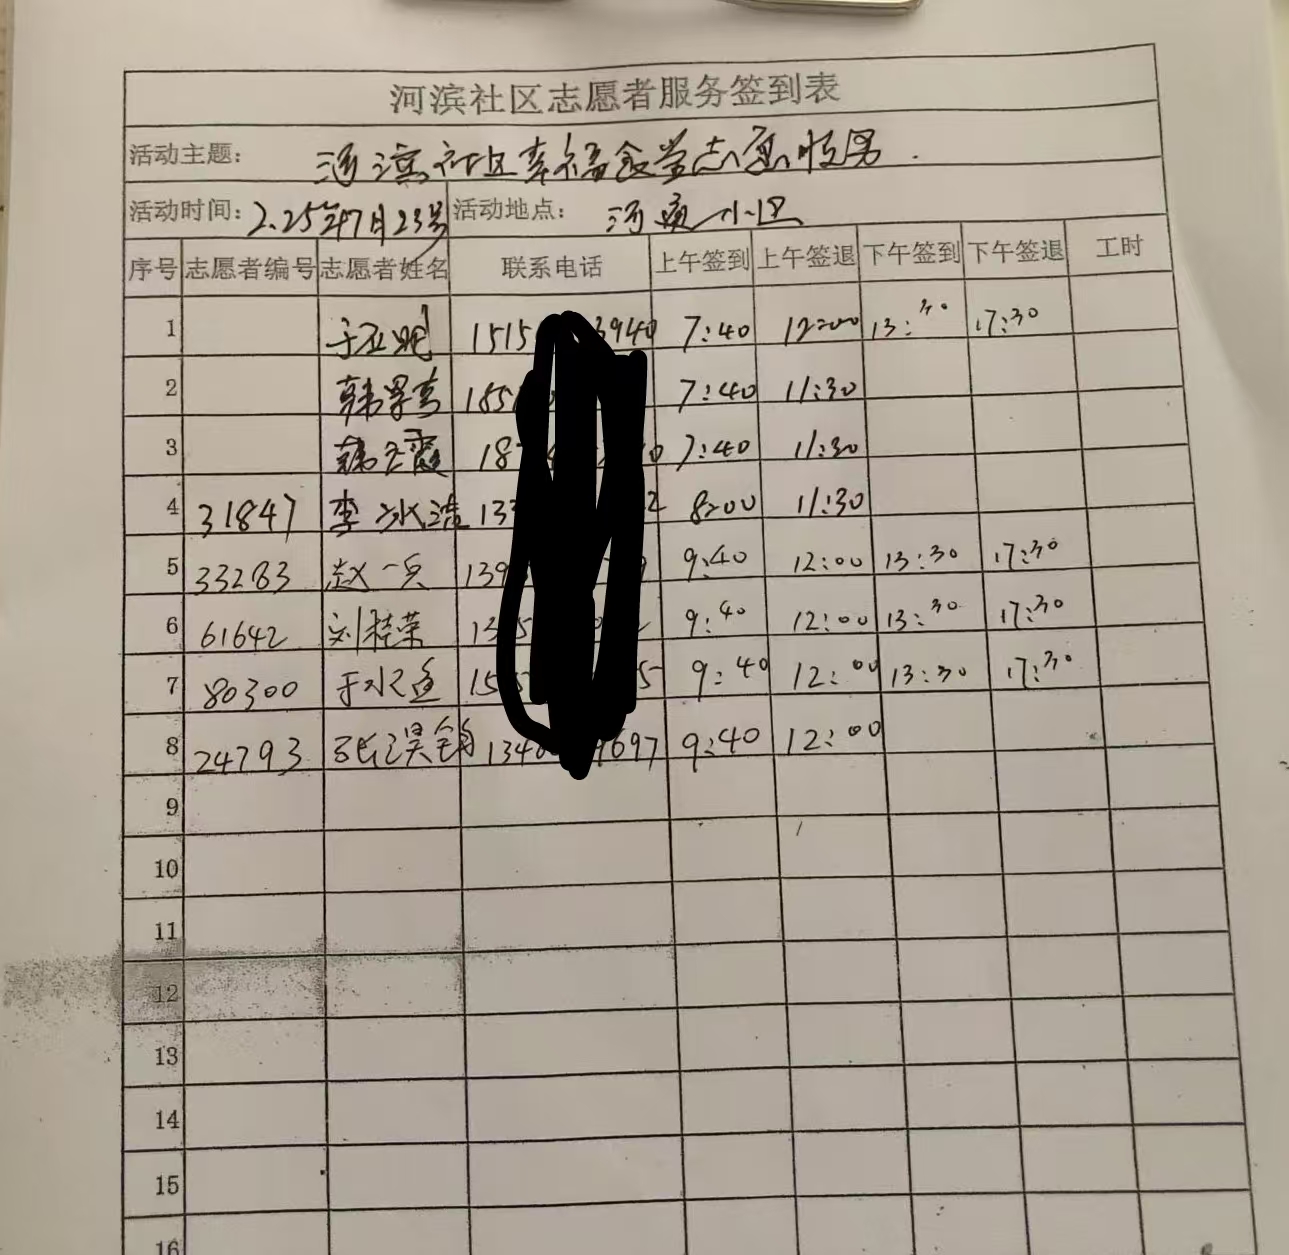 河滨社区志愿者服务签到表
活动主题: 河滨社区幸福食堂志愿服务.
活动时间: 2.25年7月23号 活动地点: 河滨小区
序号 志愿者编号 志愿者姓名 联系电话 上午签到 上午签退 下午签到 下午签退 工时
1 1515 3940 7:40 12:00 13:30 17:30
2 185 7:40 11:30
3 187 0 7:40 11:30
4 31847 李冰洁 133 2 8:00 11:30
5 33283 赵一兵 139 9:40 12:00 13:30 17:30
6 61642 刘桂荣 13 9:40 12:00 13:30 17:30
7 80300 15 5 9:40 12:00 13:30 17:30
8 24793 134 9697 9:40 12:00
9
10
11
12
13
14
15
16